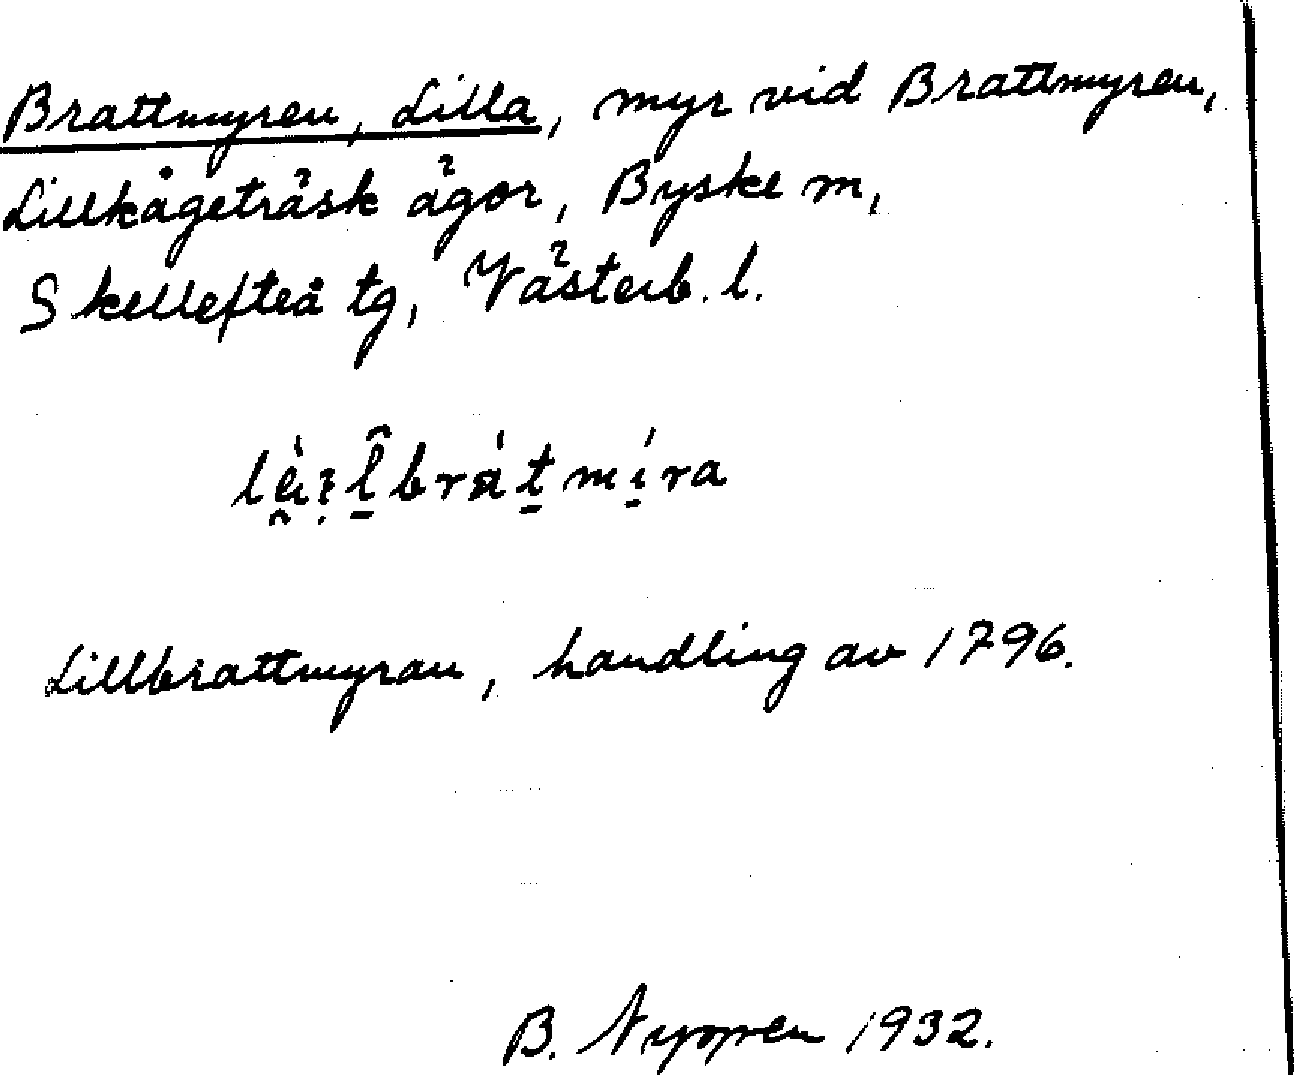 Brattmyren, Lilla, myr vid Brattmyren,
Lillkågeträsk ägor, Byske sn,
Skellefteå tg, Västerb. l.
Lillbrattmyran, handling av 1796.
B. Nyoppen 1932.